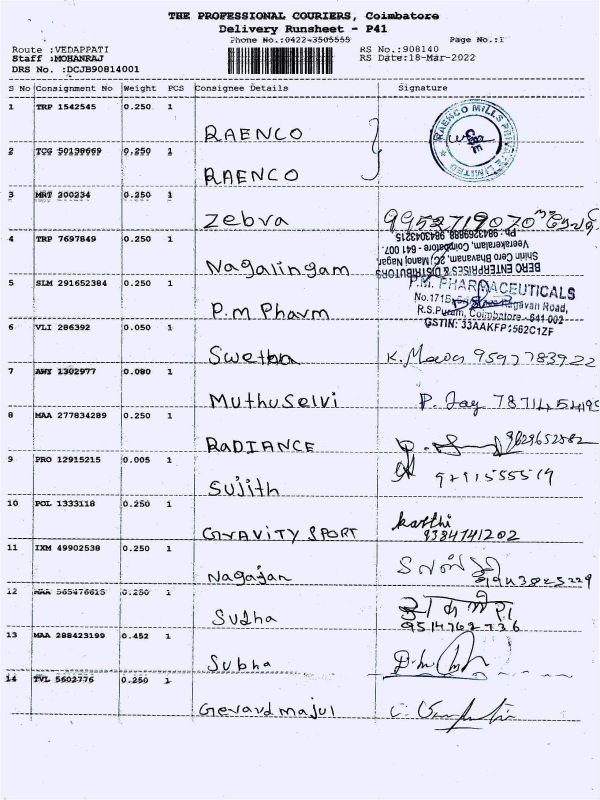 THE PROFESSIONAL COURIERS, Coimbatore
Delivery Runsheet - P41
Phone No.:0422-3505555 Page No.:1
Route :VEDAPPATI RS No.:908140
Staff :MOHANRAJ RS Date:18-Mar-2022
DRS No. :DCJB90814001
S No Consignment No Weight PCS Consignee Details Signature
1 TRP 1542545 0.250 1
RAENCO
RAENCO MILLS PRIVATE LIMITED
2 TCG 50139669 0.250 1
RAENCO
3 MRT 200234 0.250 1
Zebra 9952719070
4 TRP 7697849 0.250 1
Nagalingam
BERO ENTERPRISES & DISTRIBUTORS
Shirin Cero Bhavanam, 2C, Manoj Nagar,
Veerakeralam, Coimbatore - 641 007.
Ph: 9843269888, 9843043215
5 SLM 291652384 0.250 1
P.m Pharm
P.M. PHARMACEUTICALS
No.171 Ragavan Road,
R.S.Puram, Coimbatore - 641 002
GSTIN: 33AAKFP5562C1ZF
6 VLI 286392 0.050 1
Swetha K. 9597783922
7 AWY 1302977 0.080 1
Muthuselvi P. Jay
8 MAA 277834289 0.250 1
RADIANCE 9629652882
9 PRO 12915215 0.005 1
Sujith 9791555519
10 POL 1333118 0.250 1
GRAVITY SPORT karthi
9384741202
11 IXM 49902538 0.250 1
Nagajan
12 MAA 565476615 0.250 1
Sudha
9514762736
13 MAA 288423199 0.452 1
Subha
14 TVL 5602776 0.250 1
Gerardmajul